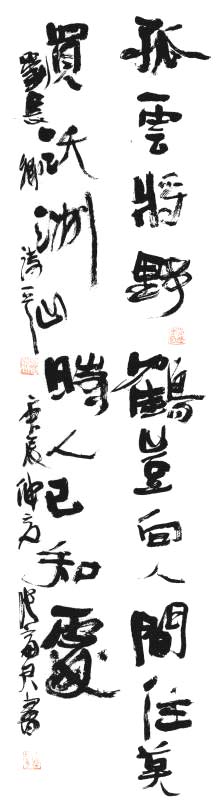 孤雲將野鶴豈向人間住莫
買沃洲山時人已知處
劉長卿詩一首 庚辰仲 書